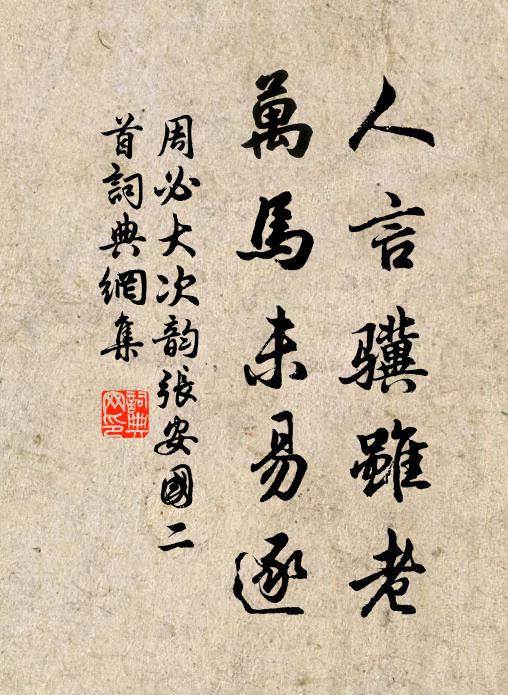 人言驥雖老
萬馬未易逐
周必大次韵張安國二
首詞典網集
詞典網印